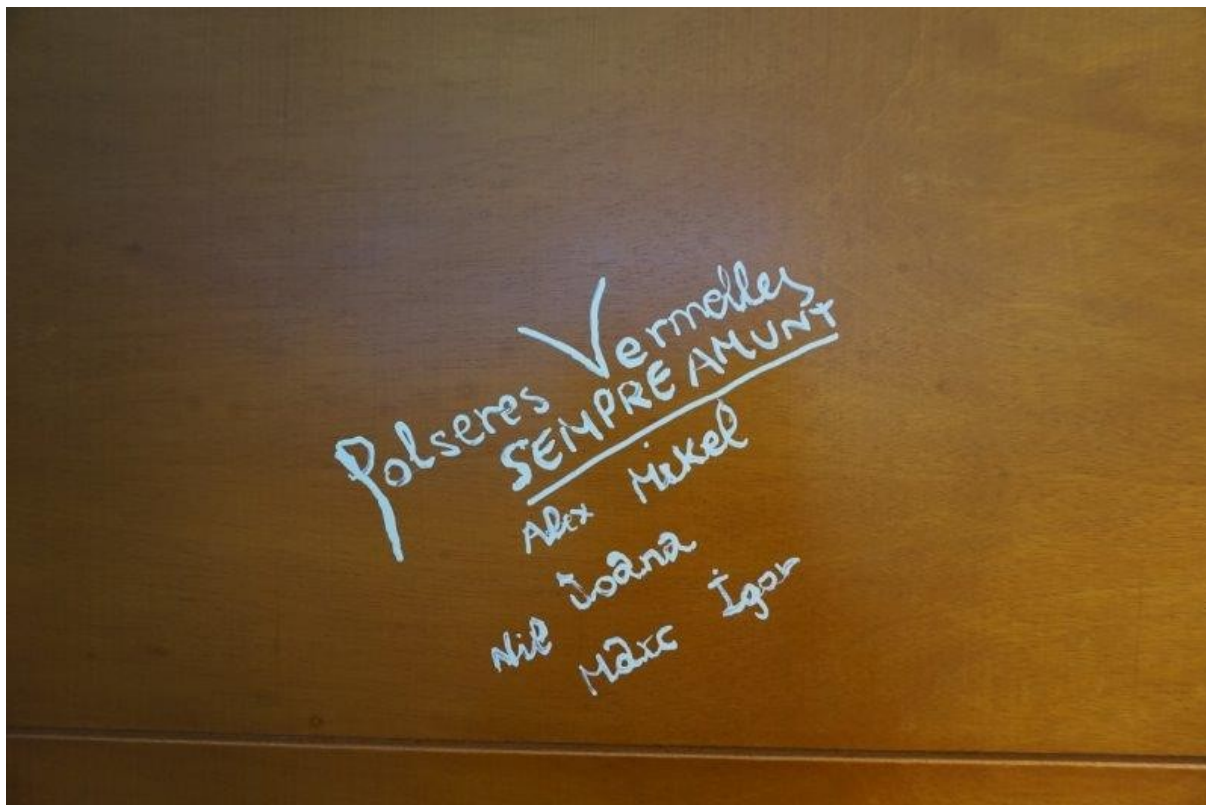 Polseres Vermelles
SEMPRE AMUNT
Alex Mikel
Joana
Nil Igor
Marc